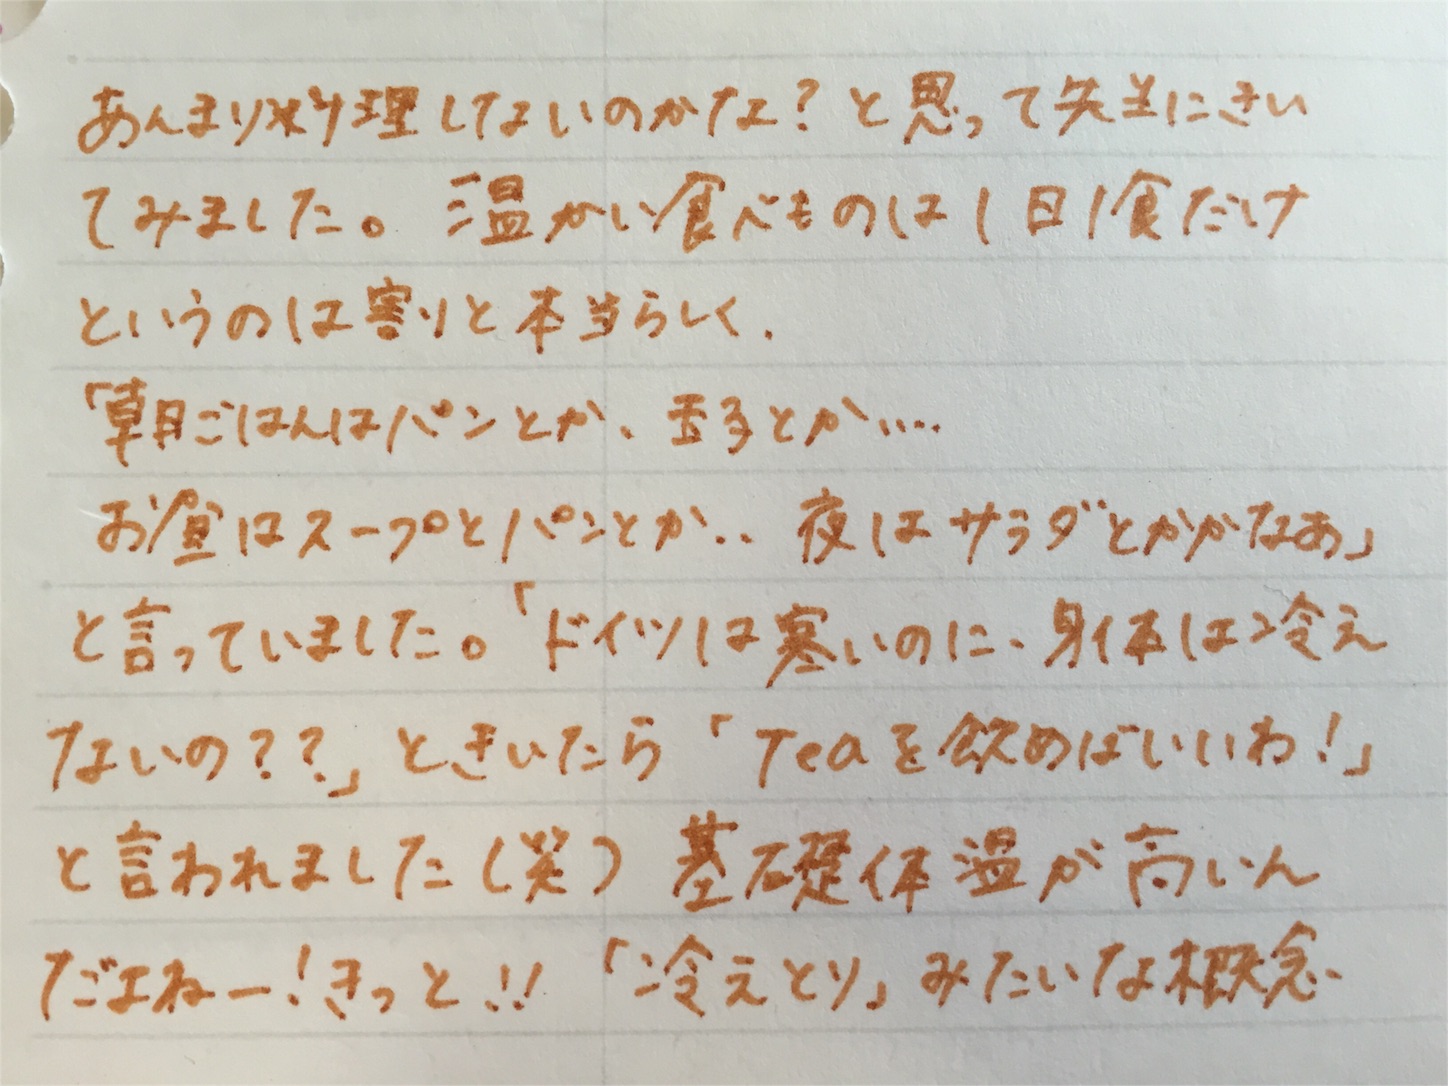 あんまり料理しないのかな？と思って先生にきい
てみました。温かい食べものは1日1食だけ
というのは割りと本当らしく、
「朝ごはんはパンとか、玉子とか....
お昼はスープとパンとか.. 夜はサラダとかかなあ」
と言っていました。「ドイツは寒いのに、身体は冷え
ないの？？」ときいたら「Teaを飲めばいいわ！」
と言われました（笑）基礎体温が高いん
だよねー！きっと!!「冷えとり」みたいな概念